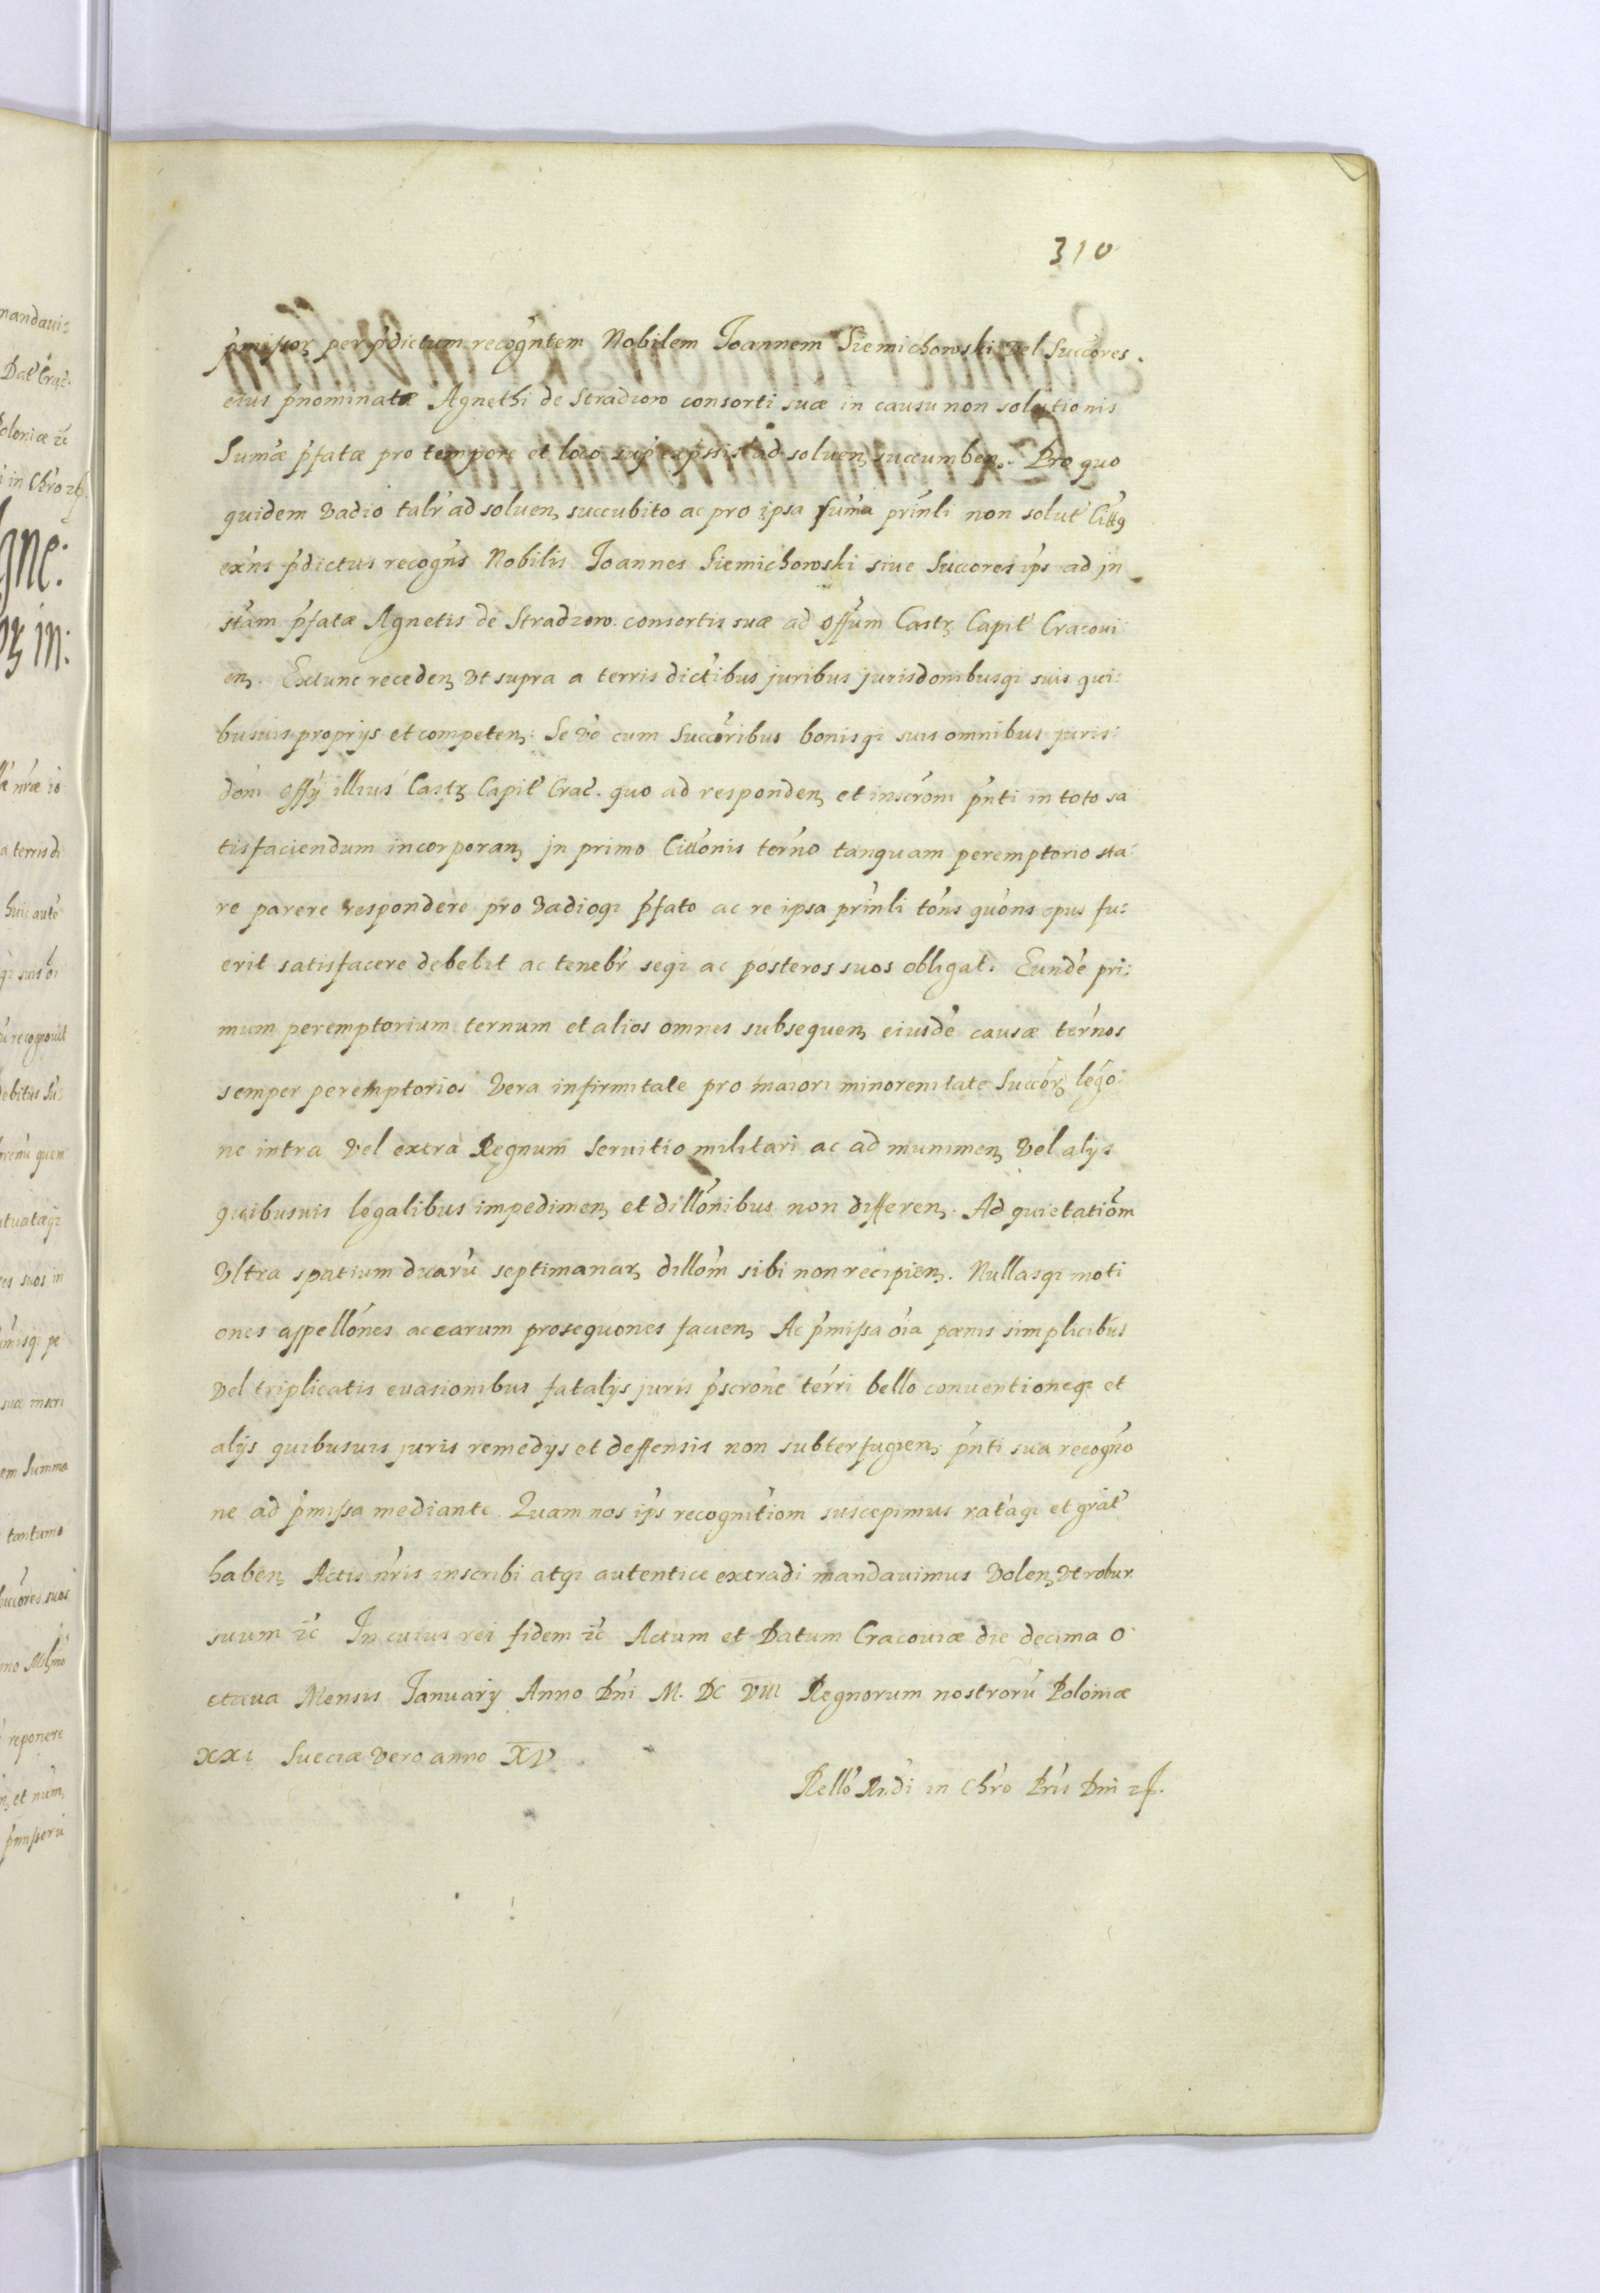 310
p̃missor̨ per p̃dictum recog̃ntem Nobilem Joannem Siemichowski vel Succ̃ores
eius p̃nominatæ Agnethi de Stradzow consorti suæ in causu non solutionis
Sum̃æ p̃fatæ pro tempore et loco sup̃ exp̃ssis ad soluen succumben. Pro quo
quidem vadio tal̃r ad soluen succubito ac pro ipsa sum̃a prin̄li non solut̃
ex̃ns p̃dictus recog̃ns Nobilis Joannes Siemichowski siue Succores ip̃s ad jn
st̃am p̃fatæ Agnetis de Stradzow consortis suæ ad offũm Castr Capit̃ Cracoui
en. Extunc receden vt supra a terris dict̃ibus juribus jurisdonibusqꝫ suis qui:
busuis proprijs et competen: Se ṽo cum Succ̃oribus bonisqꝫ suis omnibus juris:
dõni offĩj illius Castr Capit̃ Crac̃. quo ad responden et inscrõni p̃nti in toto sa
tisfaciendum incorporan jn primo Citt̃onis ter̃no tanquam peremptorio sta:
re parere respondere pro vadioqꝫ p̃fato ac re ipsa prin̄li tõns quõns opus fu:
erit satisfacere debebit ac teneb̃r seqꝫ ac posteros suos obligat. Eund̃e pri:
mum peremptorium ternum et alios omnes subsequen eiusd̃e causæ ter̃nos
semper peremptorios vera infirmitate pro maiori minorenitate Succor̃ leg̃o:
ne intra vel extra Regnum Seruitio militari ac ad munimen vel alijs
quibusuis legalibus impedimen et dill̃onibus non differen. Ad quietatiõm
vltra spatium duarũ septimanar dill̃om sibi non recipien. Nullasqꝫ moti
ones appell̃ones ac earum proseqũones facien Ac p̃missa oĩa pœnis simplicibus
vel triplicatis euasionibus fatalijs juris p̃scrõne ter̃ri bello conuentioneqꝫ et
alijs quibusuis juris remedijs et deffensis non subterfugien p̃nti sua recog̃no
ne ad p̃missa mediante. Quam nos ip̃s recognit̃iom suscepimus rat̃aqꝫ et grat̃
haben Actis nr̃is inscribi atqꝫ autentice extradi mandauimus volen vt robur
suum ꝛc̃ In cuius rei fidem ꝛc̃ Actum et Datum Cracouiæ die decima o
ctaua Mensis Januarij Anno Dñi M. DC VIII Regnorum nostrorũ Poloniæ
XXI Sueciæ vero anno XV
Rell̃o R̃ndi in Chr̃o Pr̃is Dñi ꝛc.